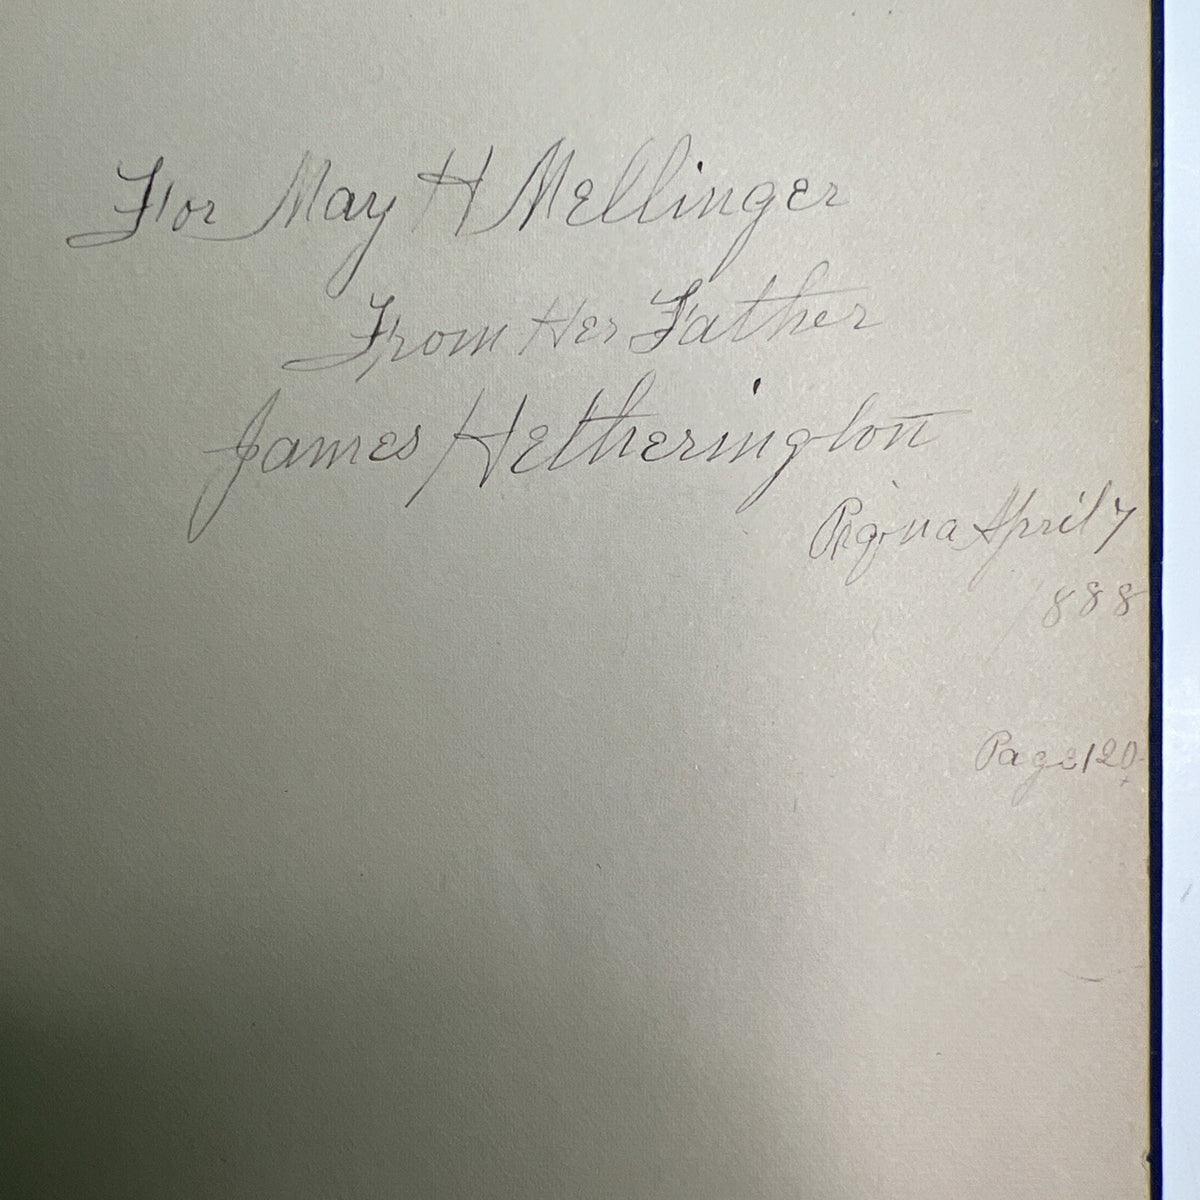 For May H Mellinger
From Her Father
James Hetherington
Regina April 7
1888
Page 120